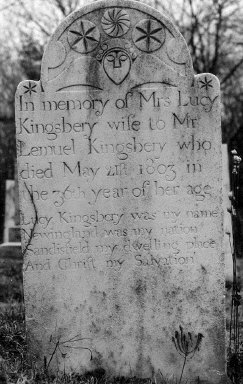 In memory of Mrs Lucy
Kingsbery wife to Mr
Lemuel Kingsbery who
died May 21st 1803 in
the 36th year of her age
Lucy Kingsbery was my name
Newengland was my nation
Sandisfield my dwelling place
And Christ my Salvation